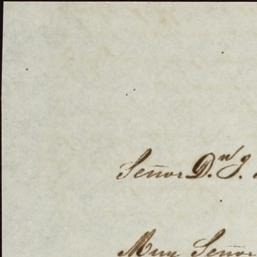 Señor D.n J.
Muy Señor